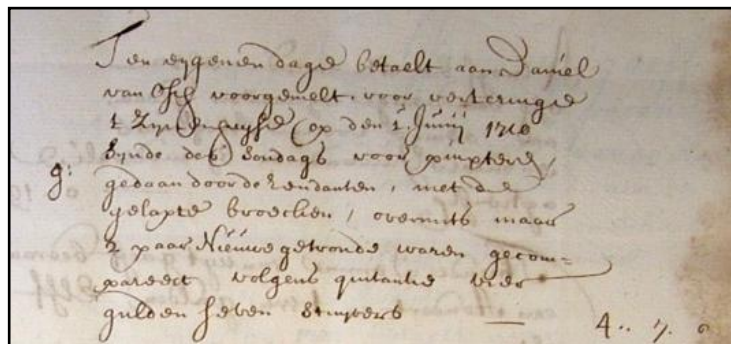 Ten eygenen dage betaelt aan Daniel
van Osch voorgemelt voor verteringe
t Zynen huyse op den 1. Junij 1710
synde des Sondags voor pinxteren,
g: gedaan door de Rendanten, met de
gelapte broecken, overmits maar
2 paar Nieuwe getronde waren gecom=
pareert volgens quitantie vier
gulden seven stuyvers — 4.. 7. 0